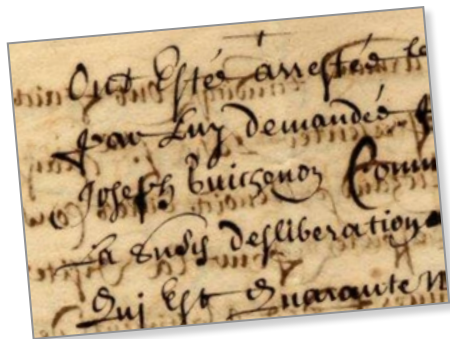 Ont Estés arrestés le
par Luy demandés
Joseph Guichenon Comm
La Susd desliberation
Qui Est Quarante